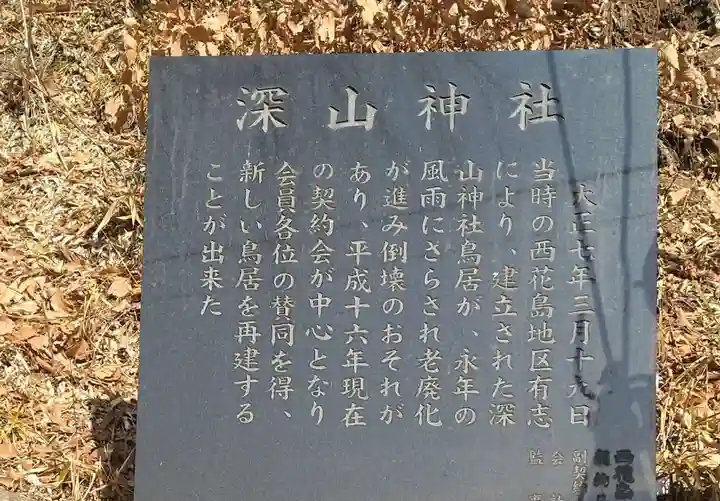 深山神社
大正七年三月十九日
当時の西花島地区有志
により、建立された深
山神社鳥居が、永年の
風雨にさらされ老廃化
が進み倒壊のおそれが
あり、平成十六年現在
の契約会が中心となり
会員各位の賛同を得、
新しい鳥居を再建する
ことが出来た
西花
副契約
会
監